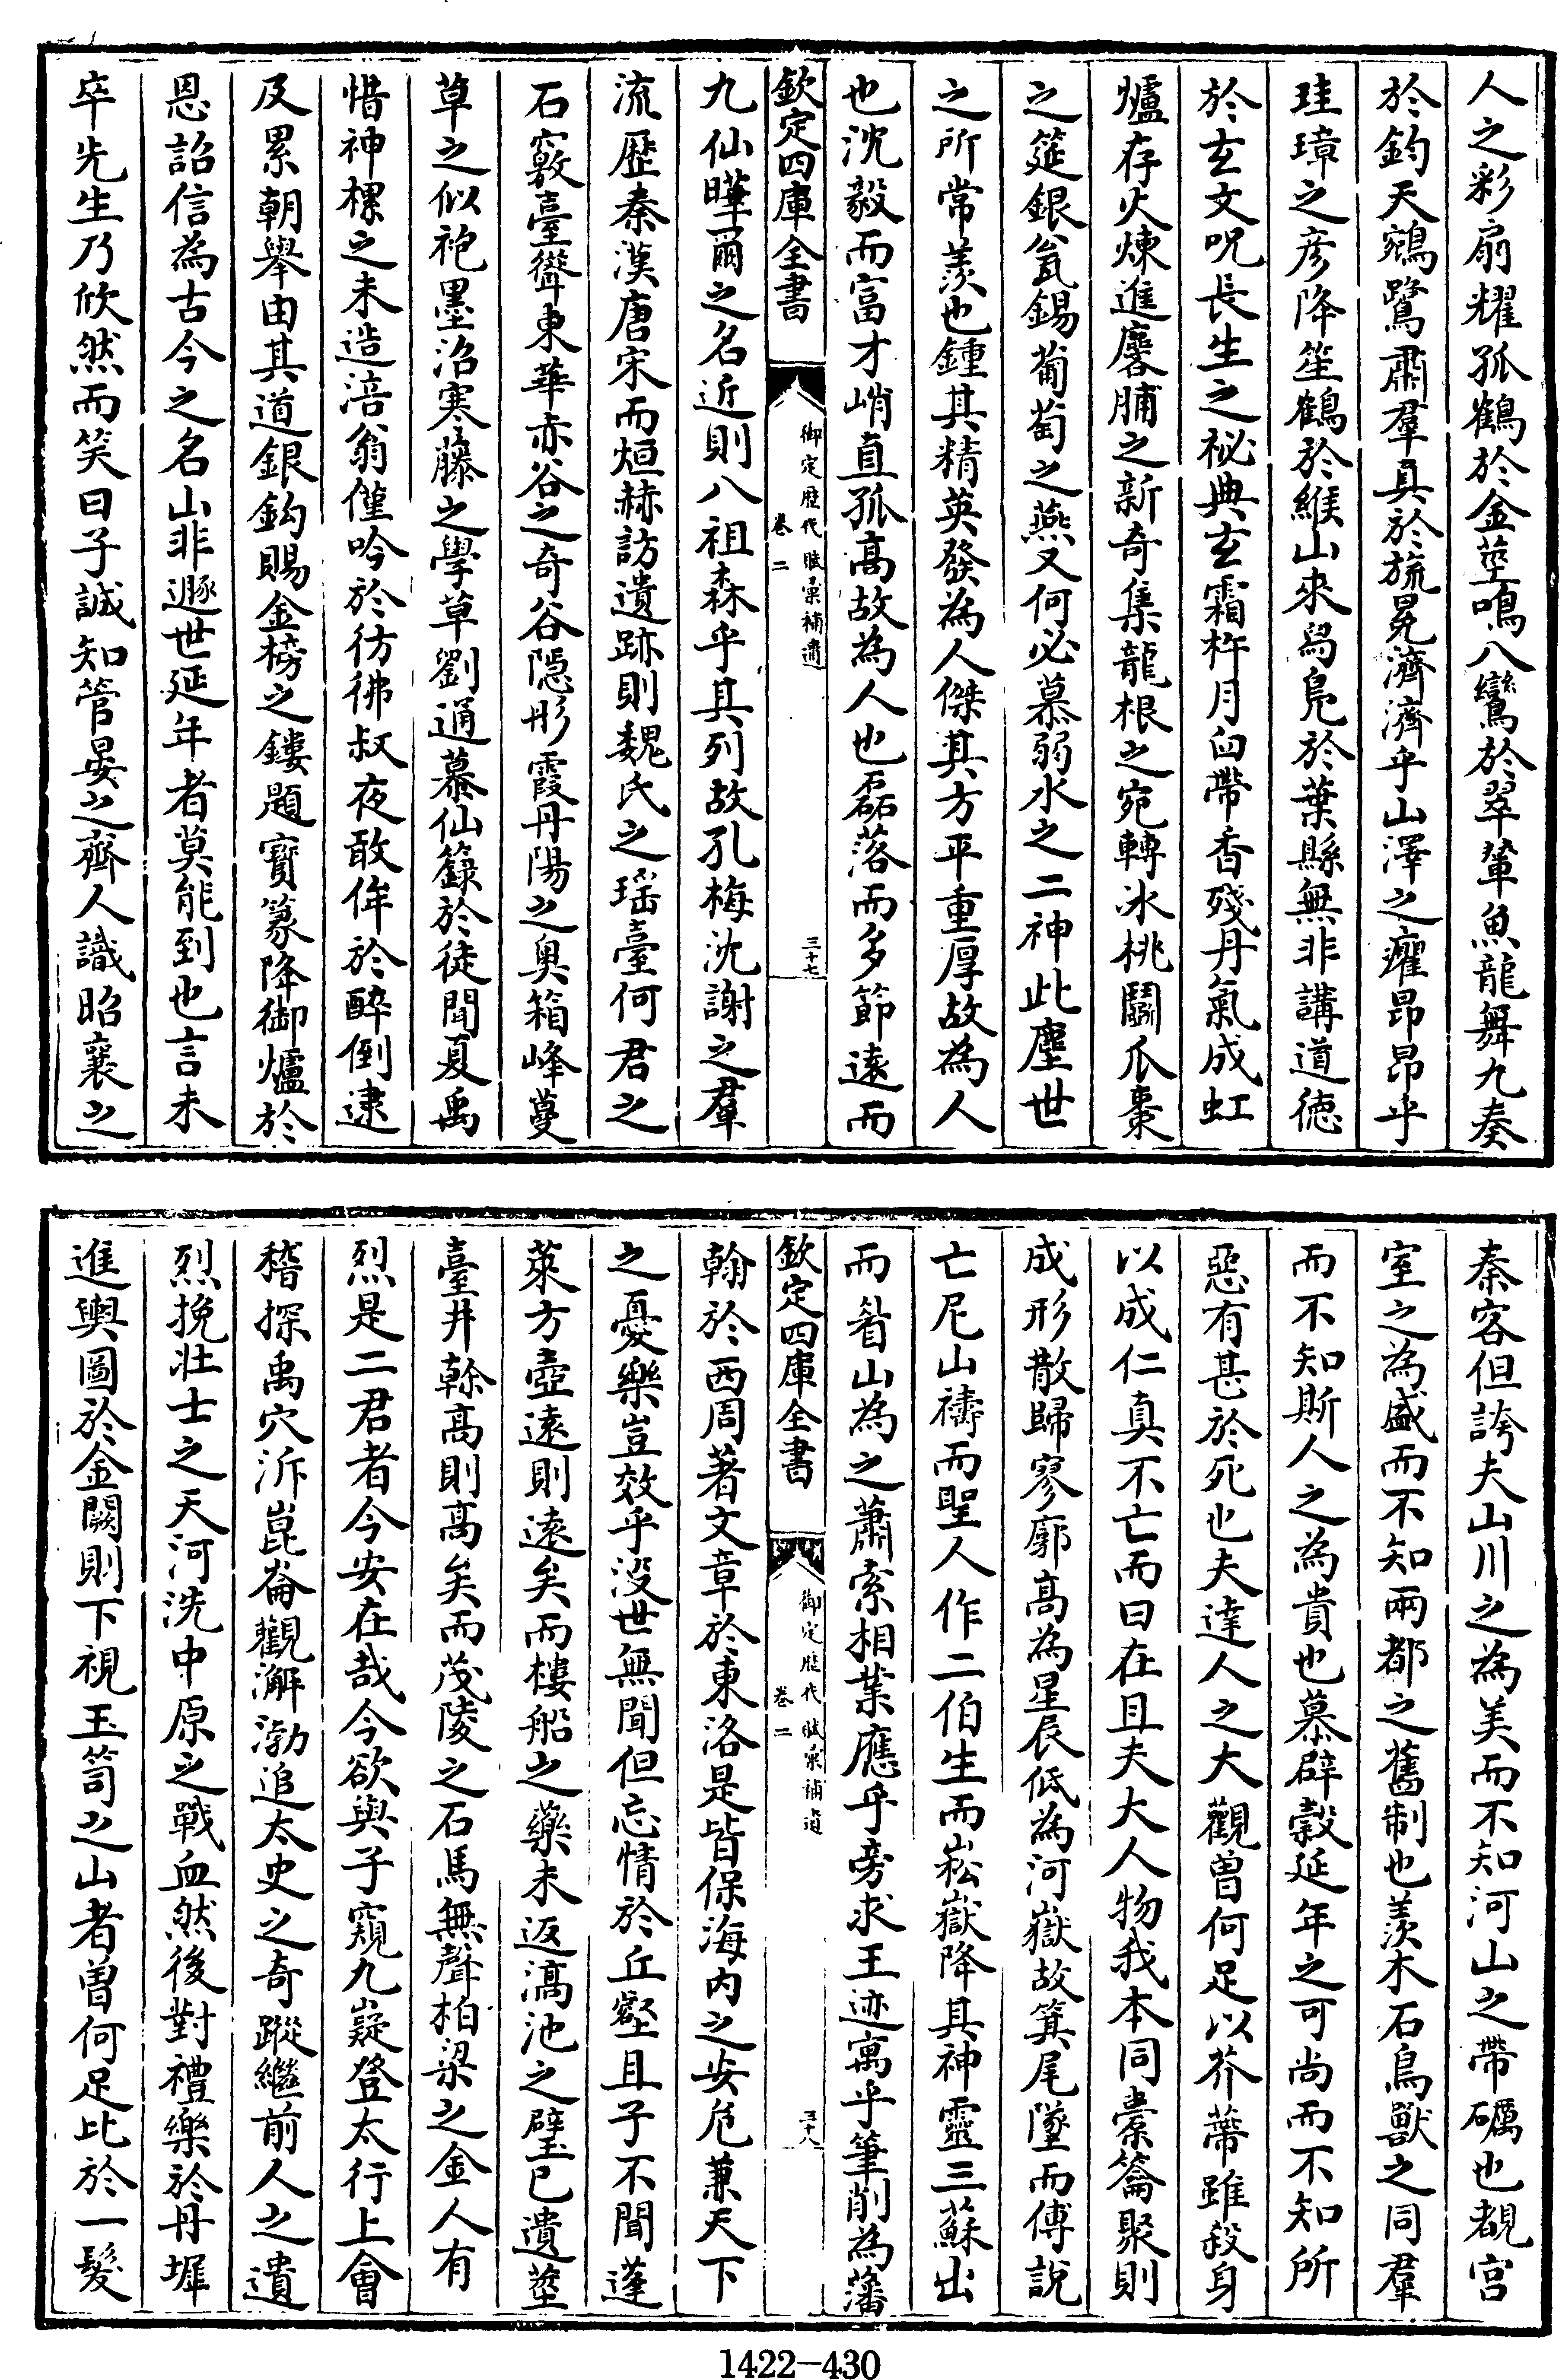 人之彩扇耀孤鶴於金莖鳴八鸞於翠輦魚龍舞九奏
於鈞天鵷鷺肅羣具於旒冕濟濟乎山澤之癯昂昂乎
珪璋之彦降笙鶴於緱山來舄鳧於葉縣無非講道德
於玄文呪長生之祕典玄霜杵月臼帶香殘丹氣成虹
爐存火煉進麐脯之新奇集龍根之宛轉冰桃鬭瓜棗
之筵銀瓮錫葡萄之燕又何必慕弱水之二神此塵世
之所常羨也鍾其精英發為人傑其方平重厚故為人
也沈毅而富才峭直孤高故為人也磊落而多節遠而
欽定四庫全書
御定歴代賦彚補遺
卷二
三十七
九仙曄爾之名近則八祖森乎其列故孔梅沈謝之羣
流歴秦漢唐宋而烜赫訪遺跡則魏氏之瑶臺何君之
石竅臺聳東華赤谷之奇谷隠彤霞丹陽之奥箱峰蔓
草之似袍墨沼寒藤之學草劉通慕仙籙於徒聞夏禹
惜神樏之未造涪翁僅吟於彷彿叔夜敢侔於醉倒逮
及累朝舉由其道銀鈎賜金榜之鏤題寳篆降御爐於
恩詔信為古今之名山非遯世延年者莫能到也言未
卒先生乃欣然而笑曰子誠知管晏之齊人識昭襄之
秦客但誇夫山川之為美而不知河山之帶礪也覩宫
室之為盛而不知兩都之舊制也羨木石鳥獸之同羣
而不知斯人之為貴也慕辟穀延年之可尚而不知所
惡有甚於死也夫達人之大觀曽何足以芥蔕雖殺身
以成仁真不亡而曰在且夫大人物我本同橐籥聚則
成形散歸寥廓高為星辰低為河嶽故箕尾墜而傅説
亡尼山禱而聖人作二伯生而崧嶽降其神靈三蘇出
而眉山為之蕭索相業應乎旁求王迹寓乎筆削為藩
欽定四庫全書
御定歴代賦彚補遺
卷二
三十八
翰於西周著文章於東洛是皆保海内之安危兼天下
之憂樂豈效乎没世無聞但忘情於丘壑且子不聞蓬
萊方壺遠則遠矣而樓船之藥未返滈池之璧已遺䓤
臺井榦高則高矣而茂陵之石馬無聲柏梁之金人有
烈是二君者今安在哉今欲與子窺九嶷登太行上會
稽探禹穴泝崑崙觀澥渤追太史之奇蹤繼前人之遺
烈挽壯士之天河洗中原之戰血然後對禮樂於丹墀
進輿圖於金闕則下視玉笥之山者曽何足比於一髮
1422-430